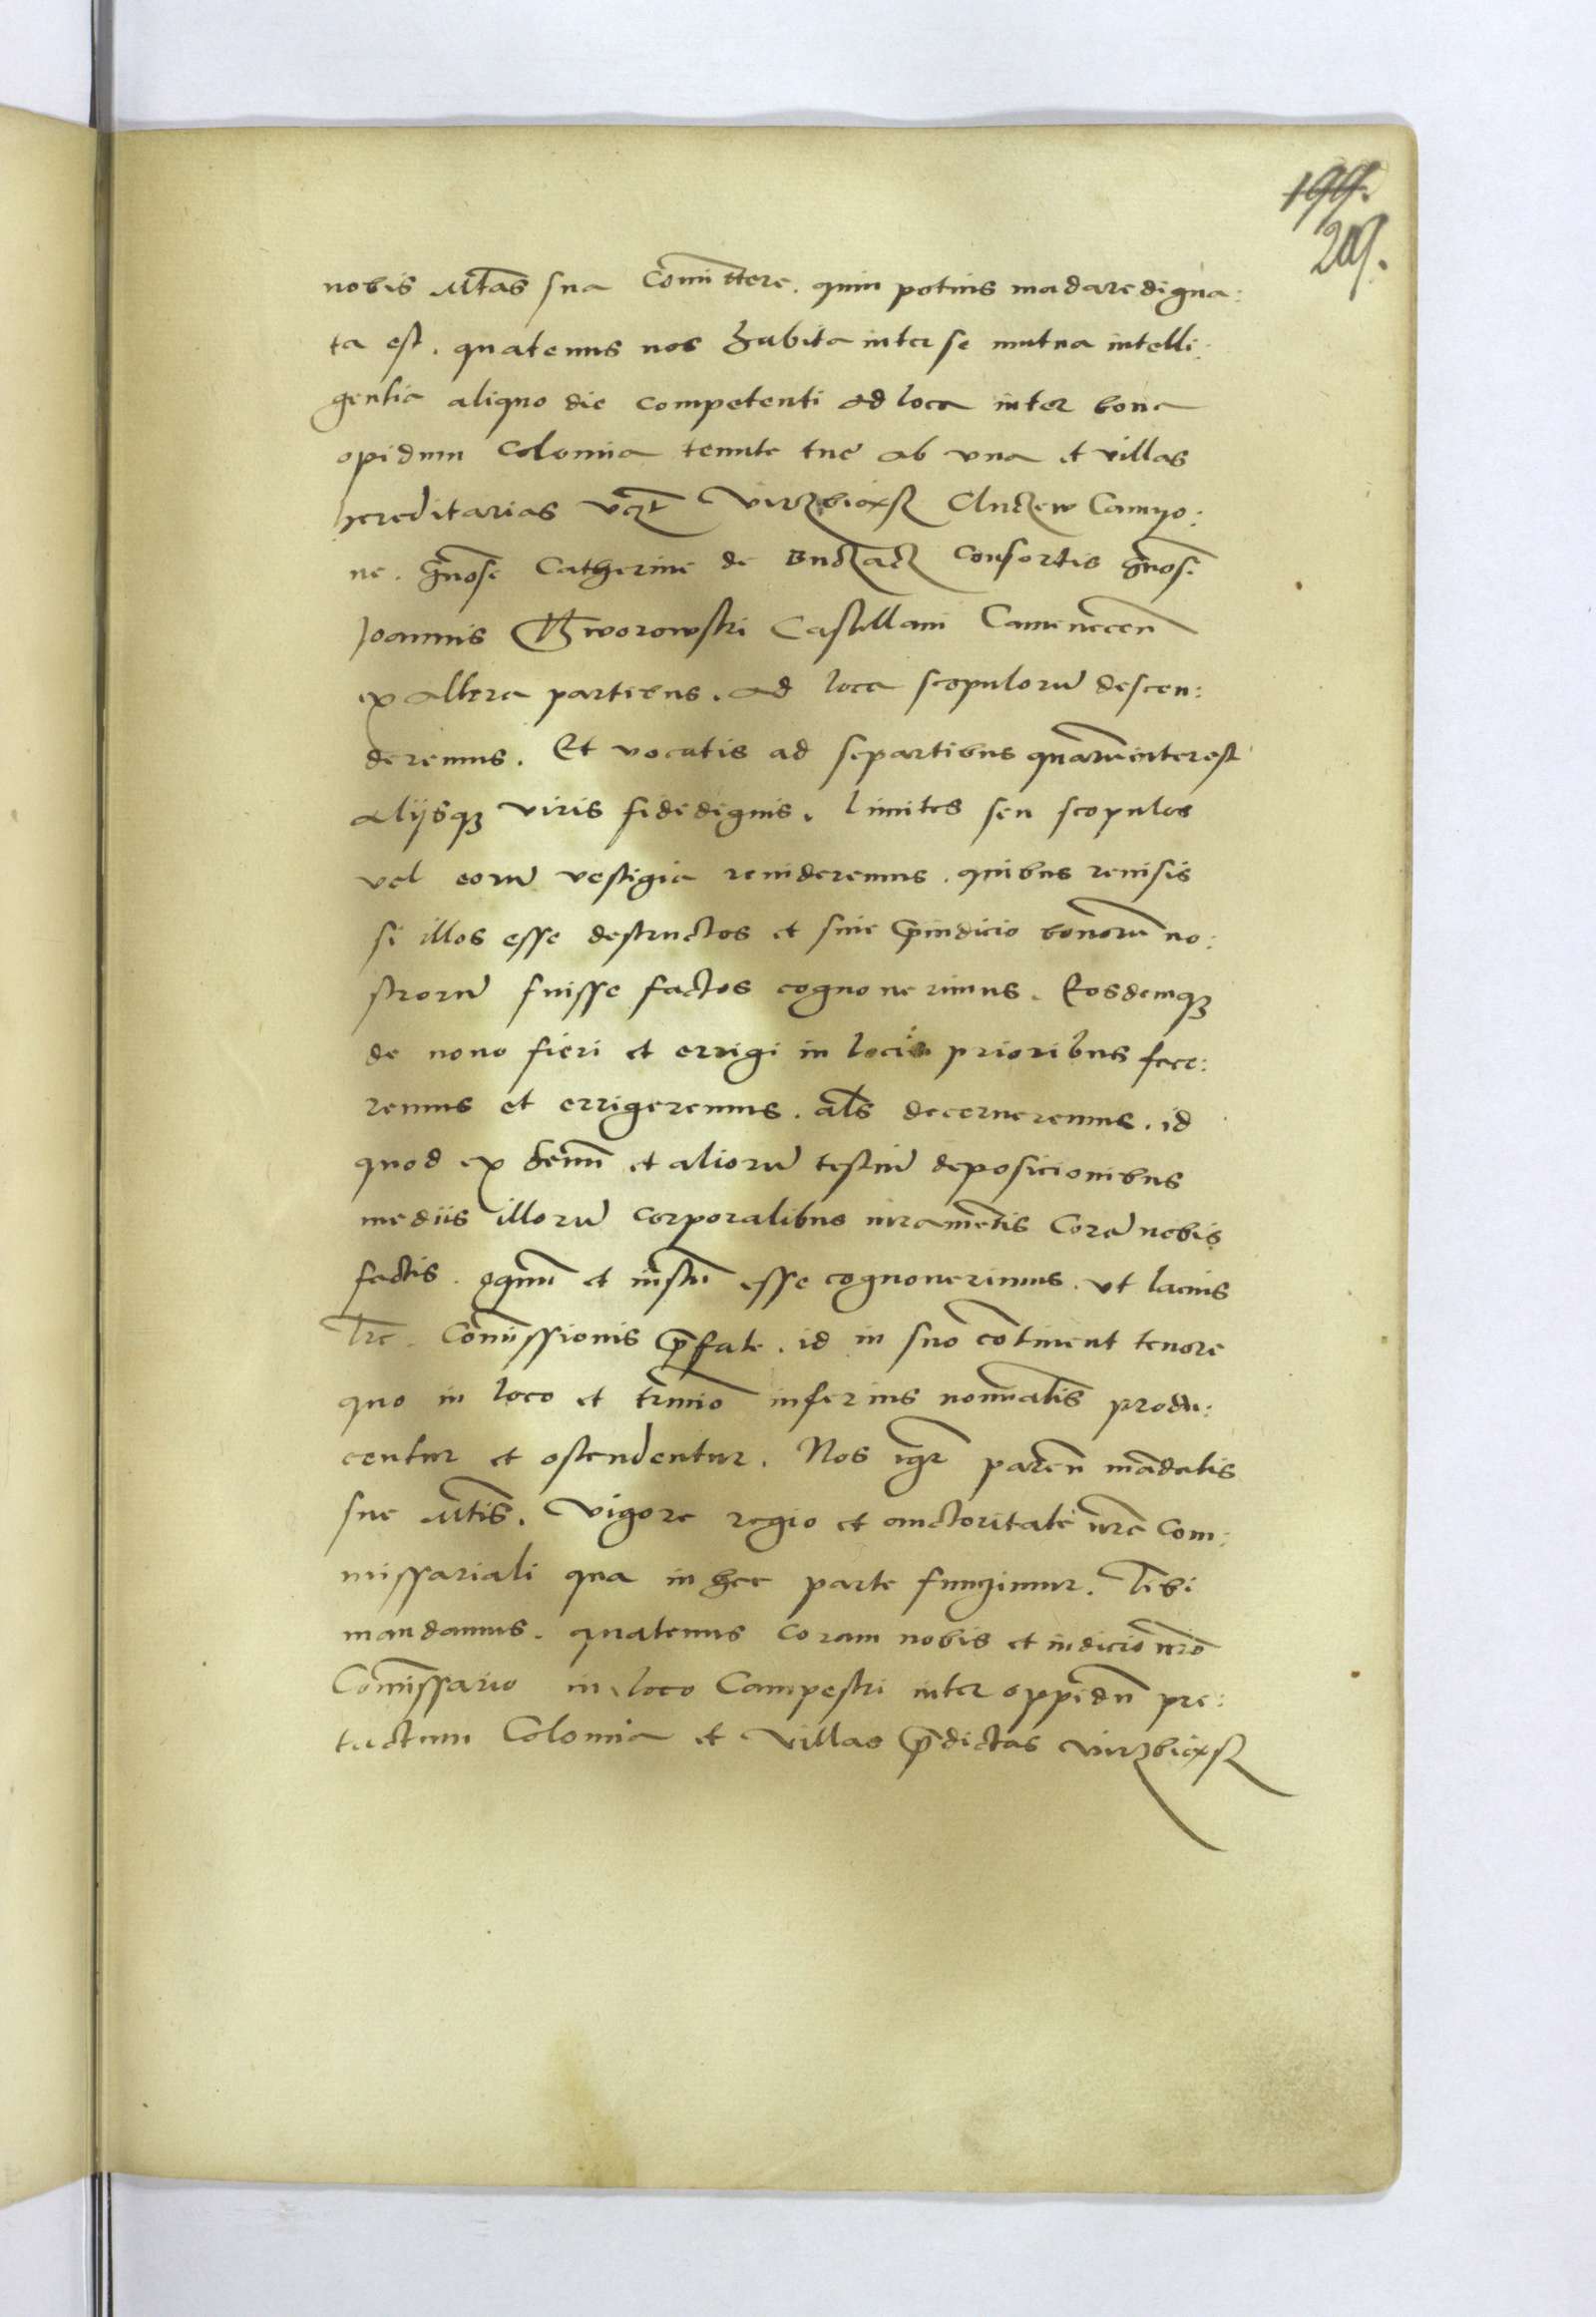 nobis Mtas sua Comittere. quin potius madare digna:
ta est. quatenus nos habita inter se mutua intelli:
gentia aliquo die competenti ad loca inter bona
opidum Colomia tenute tue ab vna et villas
hereditarias vczt Virzbiaxsz Cluczew Camyo:
ne. Gnose Catherine de Buczacz Consortis Gnosi
Joannis Thworowski Castellani Camenecen
ex altera partibus. ad loca scopulorum descen:
deremus. Et vocatis ad se partibus quarum interest
alijsq3 viris fidedignis. limites seu scopulos
vel eorum vestigia revideremus. quibus revisis
si illos esse destructos et sine preiudicio bonorum no:
strorum fuisse factos cognoverimus. Eosdemq3
de novo fieri et errigi in locis prioribus face:
remus et errigeremus. als decerneremus. id
quod ex senum et aliorum testium deposicionibus
mediis illorum corporalibus iuramentis Coram nobis
factis. equum et iustum esse cognoverimus. vt lacius
lre Comissionis prefate. id in suo continent tenore
quo in loco et termino inferius nominatis produ:
centur et ostendentur. Nos igr paren mandatis
sue Mtis. Vigore regio et auctoritate nre Com:
missariali qua in hac parte fungimur. Tibi
mandamus. quatenus coram nobis et iudicio nro
Comissario in loco Campestri inter oppidum pre:
tactum Colomia et Villas predictas Virzbiaxsz